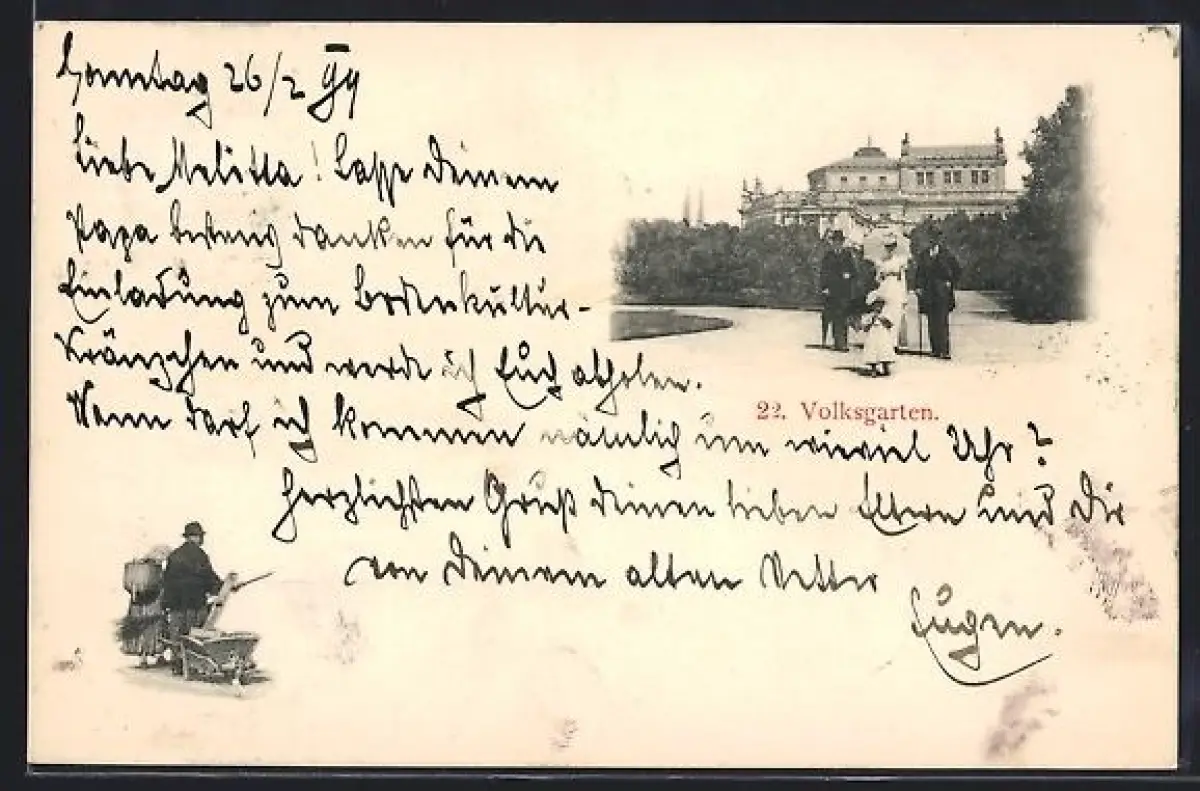 Sonntag 26/2 99
Liebe Melitta! Lasse deinem
Papa bestens danken für die
Einladung zum Bodenkultur-
Kränzchen und werde ich Euch abholen.
Wann darf ich kommen nämlich um wieviel Uhr?
Herzlichsten Gruß deinen lieben Eltern und Dir
von Deinem alten Vetter
Eugen.
22. Volksgarten.